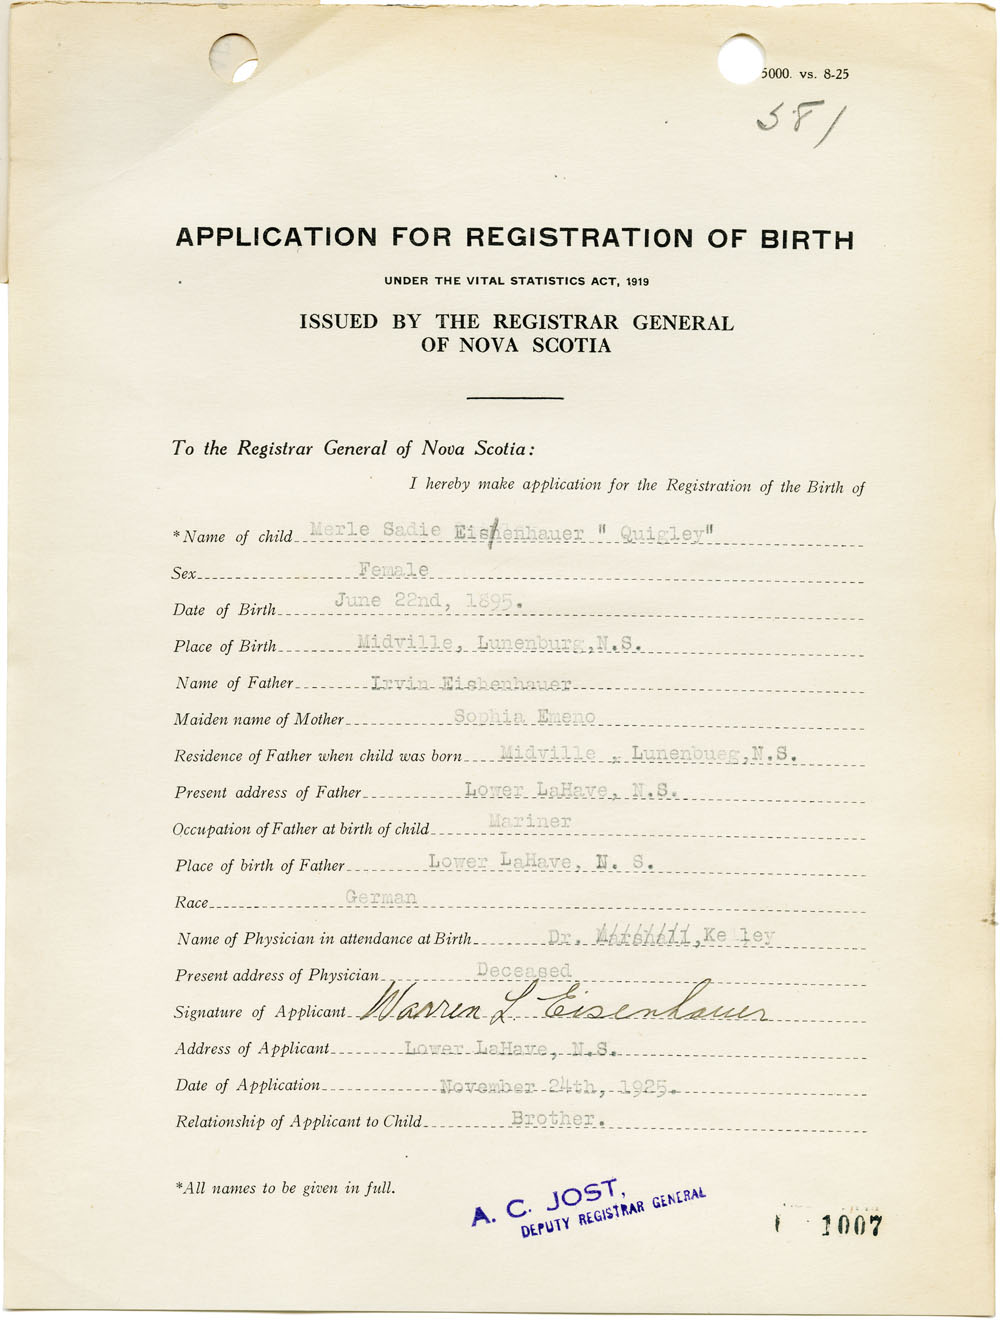 5000. vs. 8-25
581
APPLICATION FOR REGISTRATION OF BIRTH
UNDER THE VITAL STATISTICS ACT, 1919
ISSUED BY THE REGISTRAR GENERAL
OF NOVA SCOTIA
To the Registrar General of Nova Scotia:
I hereby make application for the Registration of the Birth of
*Name of child Merle Sadie Eishenhauer " Quigley"
Sex Female
Date of Birth June 22nd, 1895.
Place of Birth Midville, Lunenburg,N.S.
Name of Father Irvin Eishenhauer
Maiden name of Mother Sophia Emeno
Residence of Father when child was born Midville , Lunenbueg,N.S.
Present address of Father Lower LaHave, N.S.
Occupation of Father at birth of child Mariner
Place of birth of Father Lower LaHave, N. S.
Race German
Name of Physician in attendance at Birth Dr. Marshall,Kelley
Present address of Physician Deceased
Signature of Applicant Warren L. Eisenhauer
Address of Applicant Lower LaHave, N.S.
Date of Application November 24th, 1925.
Relationship of Applicant to Child Brother.
*All names to be given in full.
A. C. JOST,
DEPUTY REGISTRAR GENERAL
1007